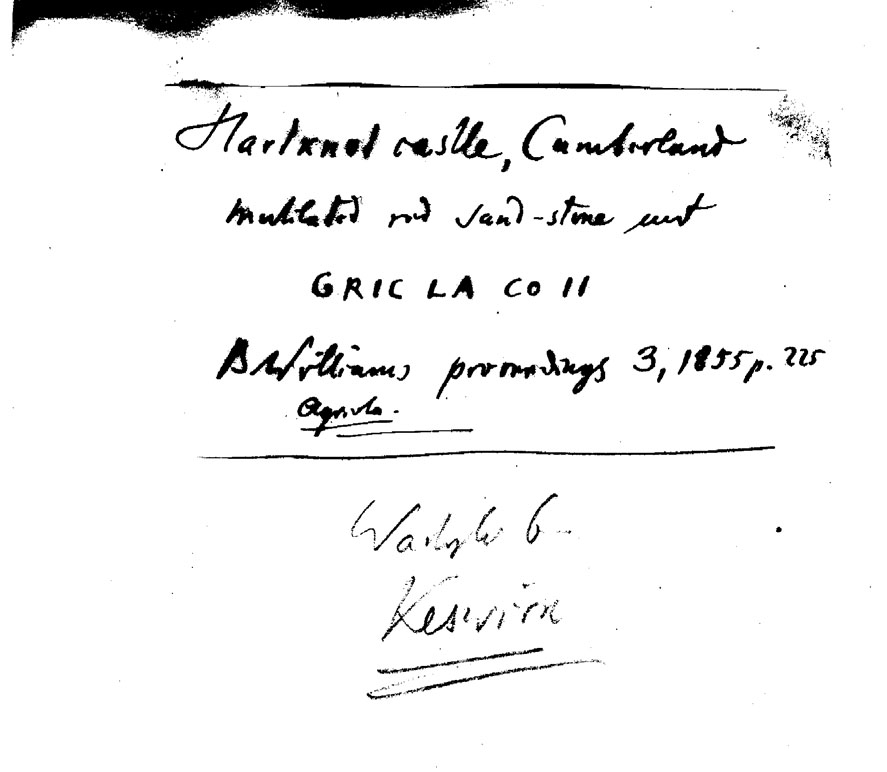 Hartknot castle, Cumberland
mutilated red sand-stone
GRIC LA CO II
B Williams proceedings 3, 1855 p. 225
Agricola.
Keswick